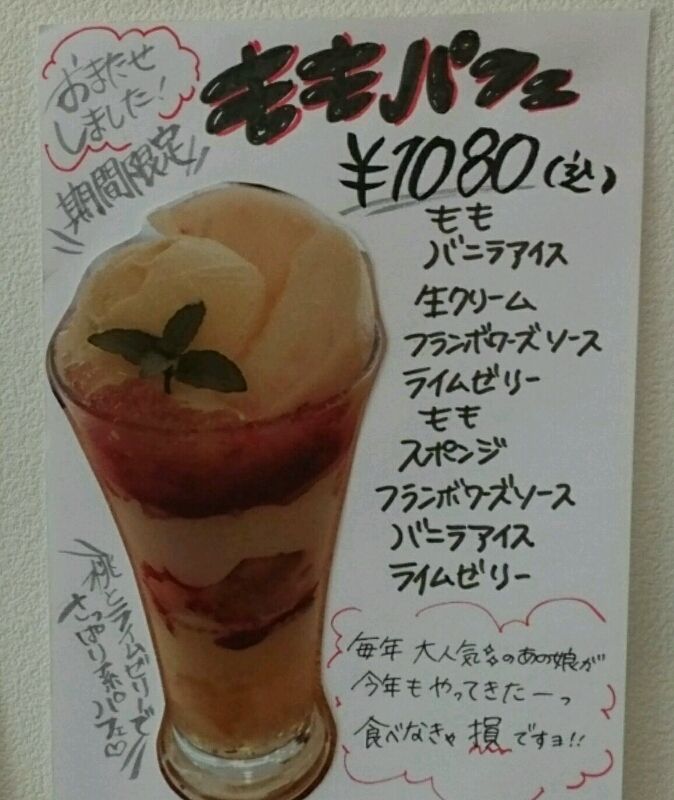 おまたせ
しました!
期間限定
ももパフェ
¥1080(込)
もも
バニラアイス
生クリーム
フランボワーズソース
ライムゼリー
もも
スポンジ
フランボワーズソース
バニラアイス
ライムゼリー
桃とライムゼリーで
さっぱり系パフェ♡
毎年大人気のあの娘が
今年もやってきたーっ
食べなきゃ損ですョ!!